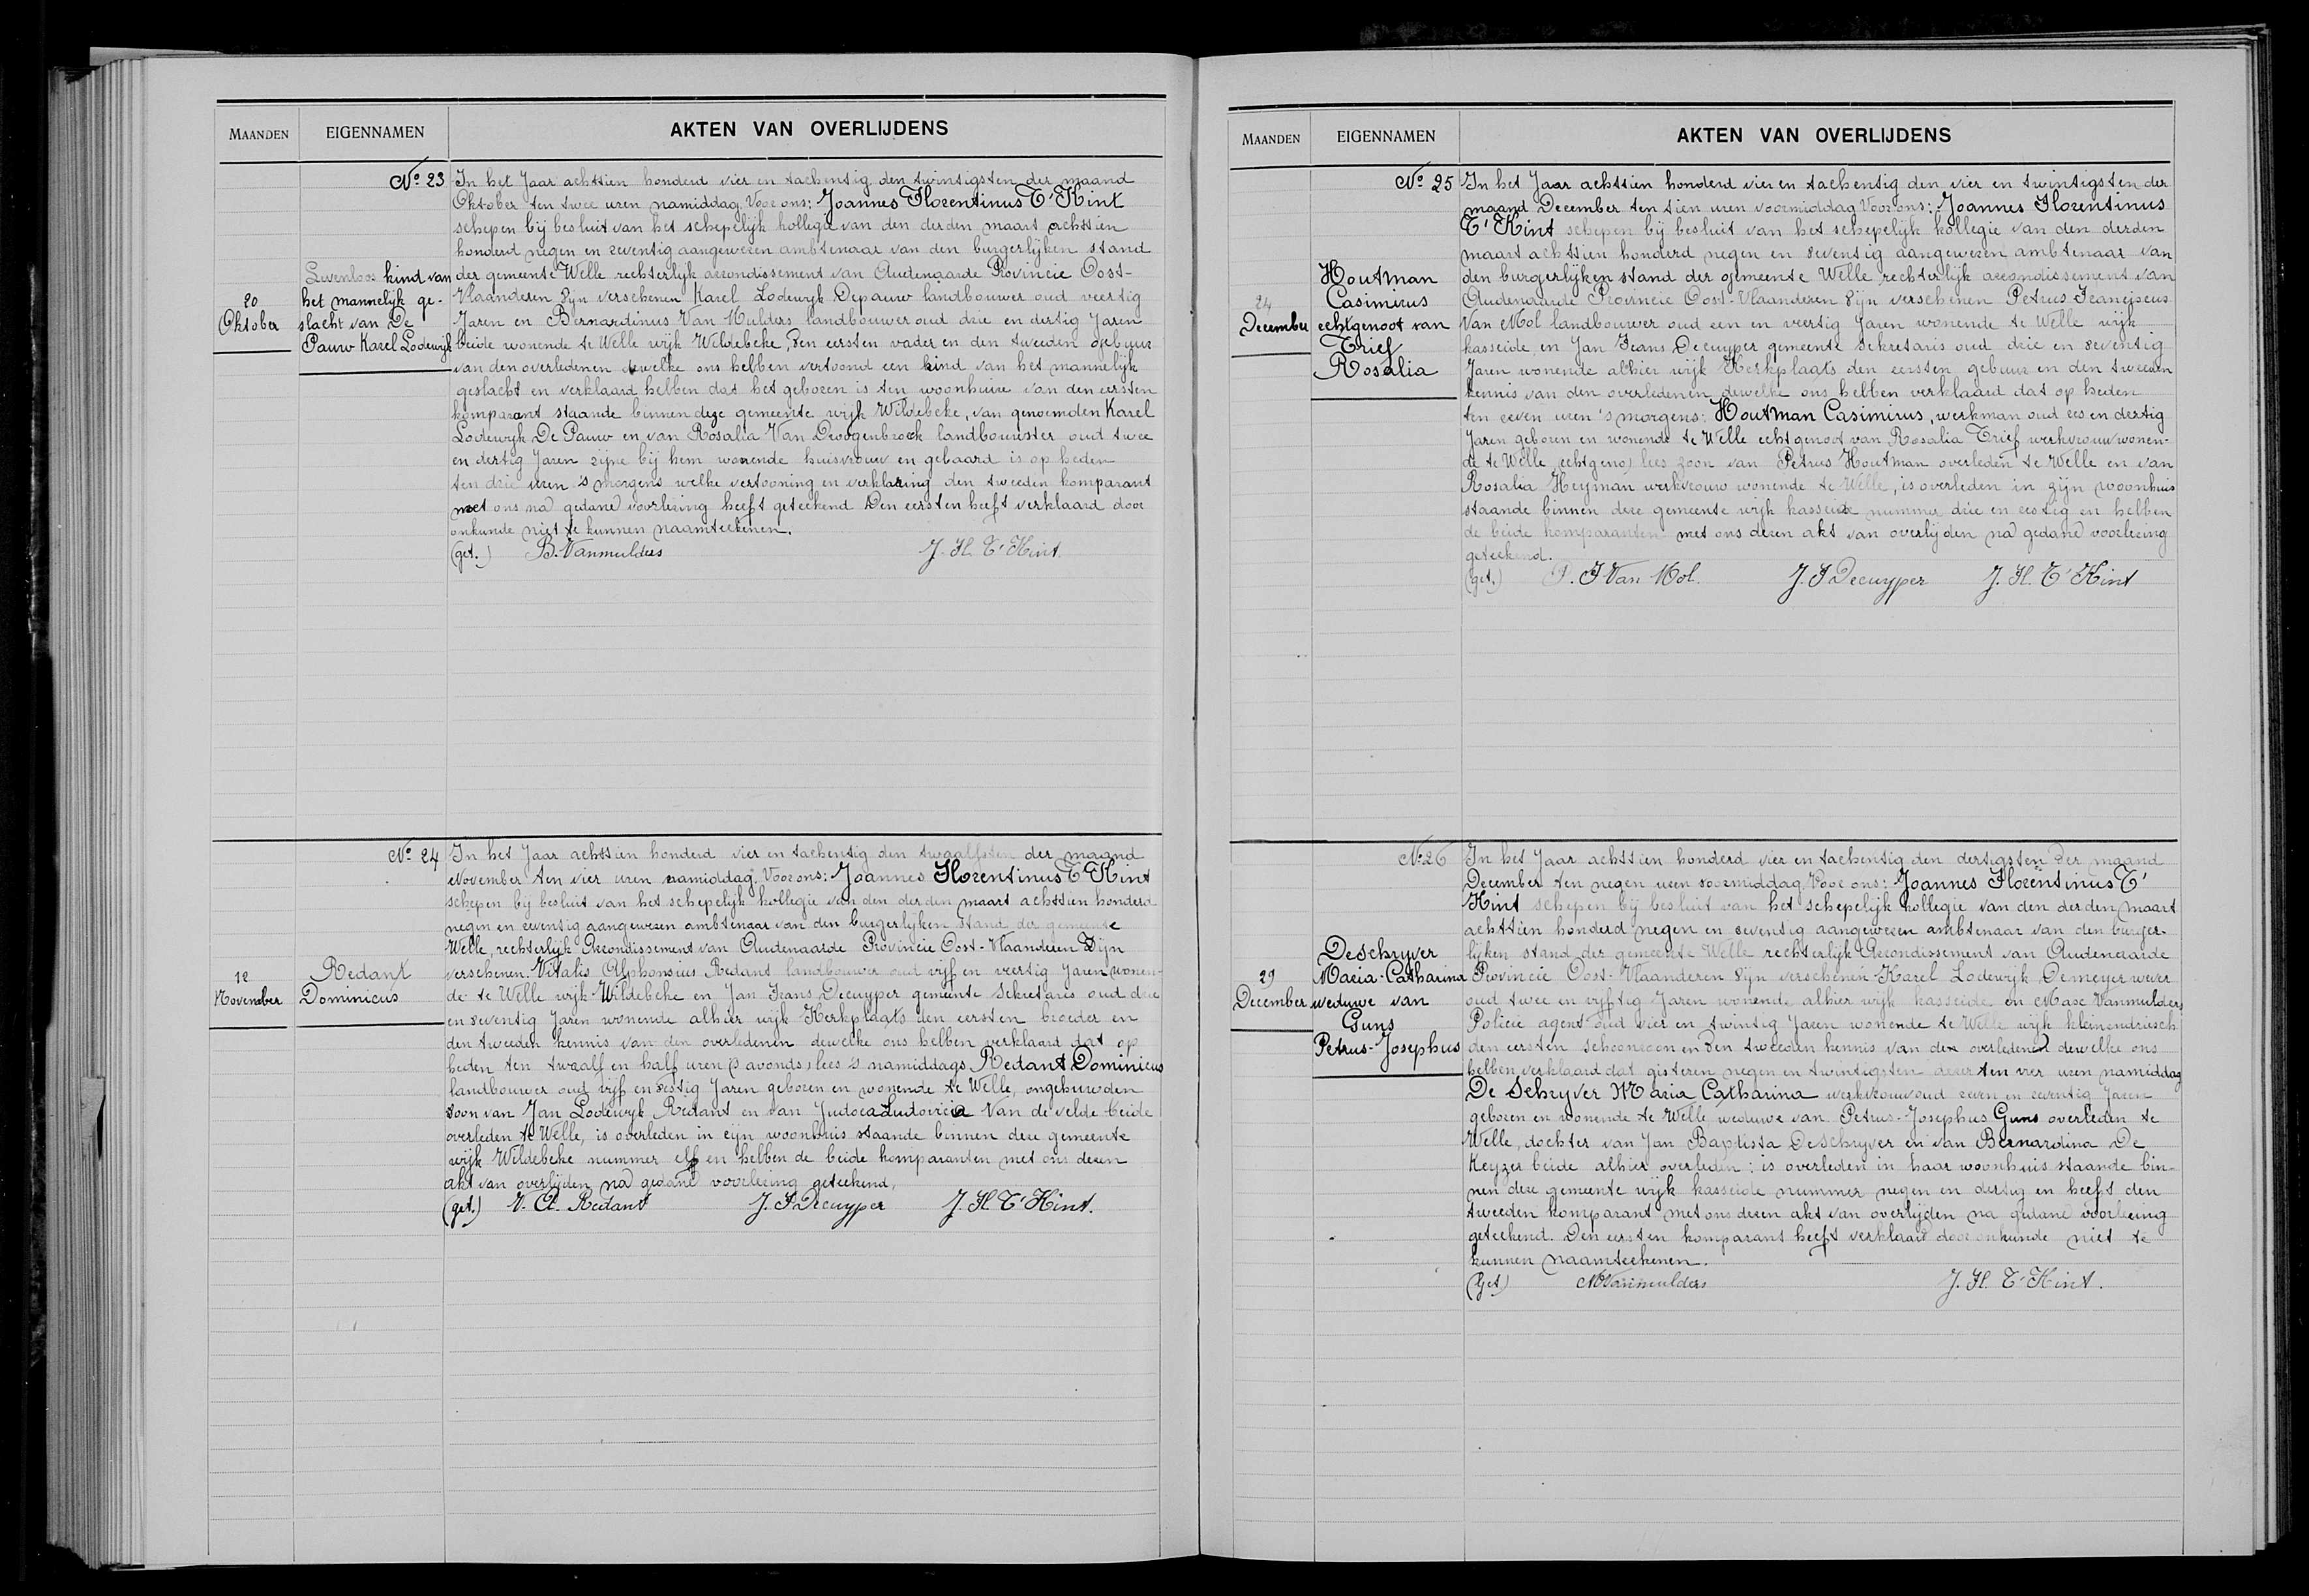 MAANDEN EIGENNAMEN AKTEN VAN OVERLIJDENS
No. 23
20
Oktober
Levenloos kind van
het mannelijk ge-
slacht van De
Pauw Karel Lodewijk
In het Jaar achttien honderd vier en tachentig den twintigsten der maand
Oktober ten twee uren namiddag. Voor ons: Joannes Florentinus T'Kint
schepen bij besluit van het schepelijk kollegie van den derden maart achttien
honderd negen en zeventig aangewezen ambtenaar van den burgerlijken stand
der gemeente Welle rechterlijk arrondissement van Audenaarde Provincie Oost-
Vlaanderen Zijn verschenen Karel Lodewyk Depauw landbouwer oud veertig
Jaren en Bernardinus Van Mulders landbouwer oud drie en dertig Jaren
beide wonende te Welle wijk Wildebeke, Den eersten vader en den tweeden gebuur
van den overledenen dewelke ons hebben vertoond een kind van het mannelijk
geslacht en verklaard hebben dat het geboren is ten woonhuize van den eersten
komparant staande binnen deze gemeente wijk Wildebeke, van genoemden Karel
Lodewyk De Pauw en van Rosalia Van Droogenbroek landbouwster oud twee
en dertig Jaren zijne bij hem wonende huisvrouw en gebaard is op heden
ten drie uren 's morgens welke vertooning en verklaring den tweeden komparant
met ons na gedane voorlezing heeft geteekend Den eersten heeft verklaard door
onkunde niet te kunnen naamteekenen.
(get.) B. Vanmulders J. Fl. T'Kint
No. 24
12
November
Redant
Dominicus
In het Jaar achttien honderd vier en tachentig den twaalfsten der maand
November ten vier uren namiddag. Voor ons: Joannes Florentinus T'Kint
schepen bij besluit van het schepelijk kollegie van den derden maart achttien honderd
negen en zeventig aangewezen ambtenaar van den burgerlijken stand der gemeente
Welle, rechterlijk Arrondissement van Audenaarde Provincie Oost-Vlaanderen Zijn
verschenen. Vitalis Alphonsius Redant landbouwer oud vijf en veertig Jaren wonen-
de te Welle wijk Wildebeke en Jan Frans Decuyper gemeente Sekretaris oud drie
en zeventig Jaren wonende alhier wijk Kerkplaats den eersten broeder en
den tweeden kennis van den overledenen dewelke ons hebben verklaard dat op
heden ten twaalf en half uren ('s avonds) lees 's namiddags Redant Dominicus
landbouwer oud vijf en zestig Jaren geboren en wonende te Welle, ongehuwden
zoon van Jan Lodewyk Redant en van Judoca Ludovica Van de velde beide
overleden te Welle, is overleden in zijn woonhuis staande binnen deze gemeente
wijk Wildebeke nummer elf en hebben de beide komparanten met ons dezen
akt van overlijden na gedane voorlezing geteekend,
(get.) V. A. Redant J. F Decuyper J. Fl. T'Kint.
MAANDEN EIGENNAMEN AKTEN VAN OVERLIJDENS
No. 25
24
December
Houtman
Casimirus
echtgenoot van
Trief
Rosalia
In het Jaar achttien honderd vier en tachentig den vier en twintigsten der
maand December ten tien uren voormiddag Voor ons: Joannes Florentinus
T'Kint schepen bij besluit van het schepelijk kollegie van den derden
maart achttien honderd negen en zeventig aangewezen ambtenaar van
den burgerlijken stand der gemeente Welle rechterlijk arrondissement van
Audenaarde Provincie Oost-Vlaanderen Zijn verschenen Petrus Franciscus
Van Mol landbouwer oud een en veertig Jaren wonende te Welle wijk
kasseide, en Jan Frans Decuyper gemeente sekretaris oud drie en zeventig
Jaren wonende alhier wijk Kerkplaats den eersten gebuur en den tweeden
kennis van den overledenen dewelke ons hebben verklaard dat op heden
ten zeven uren 's morgens: Houtman Casimirus, werkman oud zes en dertig
Jaren geboren en wonende te Welle echtgenoot van Rosalia Trief werkvrouw wonen-
de te Welle (echtgeno) lees zoon van Petrus Houtman overleden te Welle en van
Rosalia Heyman werkvrouw wonende te Welle, is overleden in zijn woonhuis
staande binnen deze gemeente wijk kasseide nummer drie en zestig en hebben
de beide komparanten met ons dezen akt van overlijden na gedane voorlezing
geteekend.
(get.) P. F Van Mol. J. F Decuyper J. Fl. T'Kint
No. 26
29
December
Deschryver
Maria-Catharina
weduwe van
Guns
Petrus-Josephus
In het Jaar achttien honderd vier en tachentig den dertigsten der maand
December ten negen uren voormiddag Voor ons: Joannes Florentinus T'
Kint schepen bij besluit van het schepelijk kollegie van den derden maart
achttien honderd negen en zeventig aangewezen ambtenaar van den burger-
lijken stand der gemeente Welle rechterlijk Arrondissement van Audenaarde
Provincie Oost-Vlaanderen Zijn verschenen Karel Lodewijk Demeyer wever
oud twee en vijftig Jaren wonende alhier wijk kasseide en Max Vanmulders
Policie agent oud vier en twintig Jaren wonende te Welle wijk kleinendriesch
den eersten schoonzoon en Den tweeden kennis van den overledenen dewelke ons
hebben verklaard dat gisteren negen en twintigsten dezer ten vier uren namiddag
De Schryver Maria Catharina werkvrouw oud zeven en zeventig Jaren
geboren en wonende te Welle, weduwe van Petrus-Josephus Guns overleden te
Welle, dochter van Jan Baptista Deschryver en van Bernardina De
Keyzer beide alhier overleden: is overleden in haar woonhuis staande bin-
nen deze gemeente wijk kasseide nummer negen en dertig en heeft den
tweeden komparant met ons dezen akt van overlijden na gedane voorlezing
geteekend. Den eersten komparant heeft verklaard door onkunde niet te
kunnen naamteekenen.
(Get) M Vanmulders J. Fl. T'Kint.